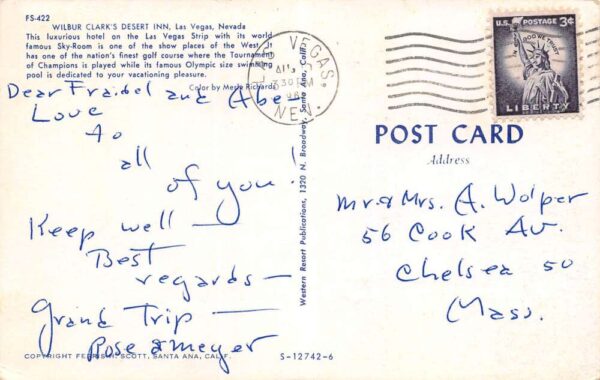 FS-422
WILBUR CLARK'S DESERT INN, Las Vegas, Nevada
This luxurious hotel on the Las Vegas Strip with its world
famous Sky-Room is one of the show places of the West. It
has one of the nation's finest golf course where the Tournament
of Champions is played while its famous Olympic size swimming
pool is dedicated to your vacationing pleasure.
Color by Merle Richards
Dear Fraidel and Abe —
Love
to
all
of you!
Keep well —
Best
regards —
Grand Trip —
Rose & Meyer
COPYRIGHT FERRIS H. SCOTT, SANTA ANA, CALIF.
S-12742-6
Western Resort Publications, 1320 N. Broadway, Santa Ana, Calif.
VEGAS,
330 PM
NEV.
U.S. POSTAGE 3¢
IN GOD WE TRUST
LIBERTY
POST CARD
Address
Mr & Mrs. A. Wolper
56 Cook Av.
Chelsea 50
Mass.